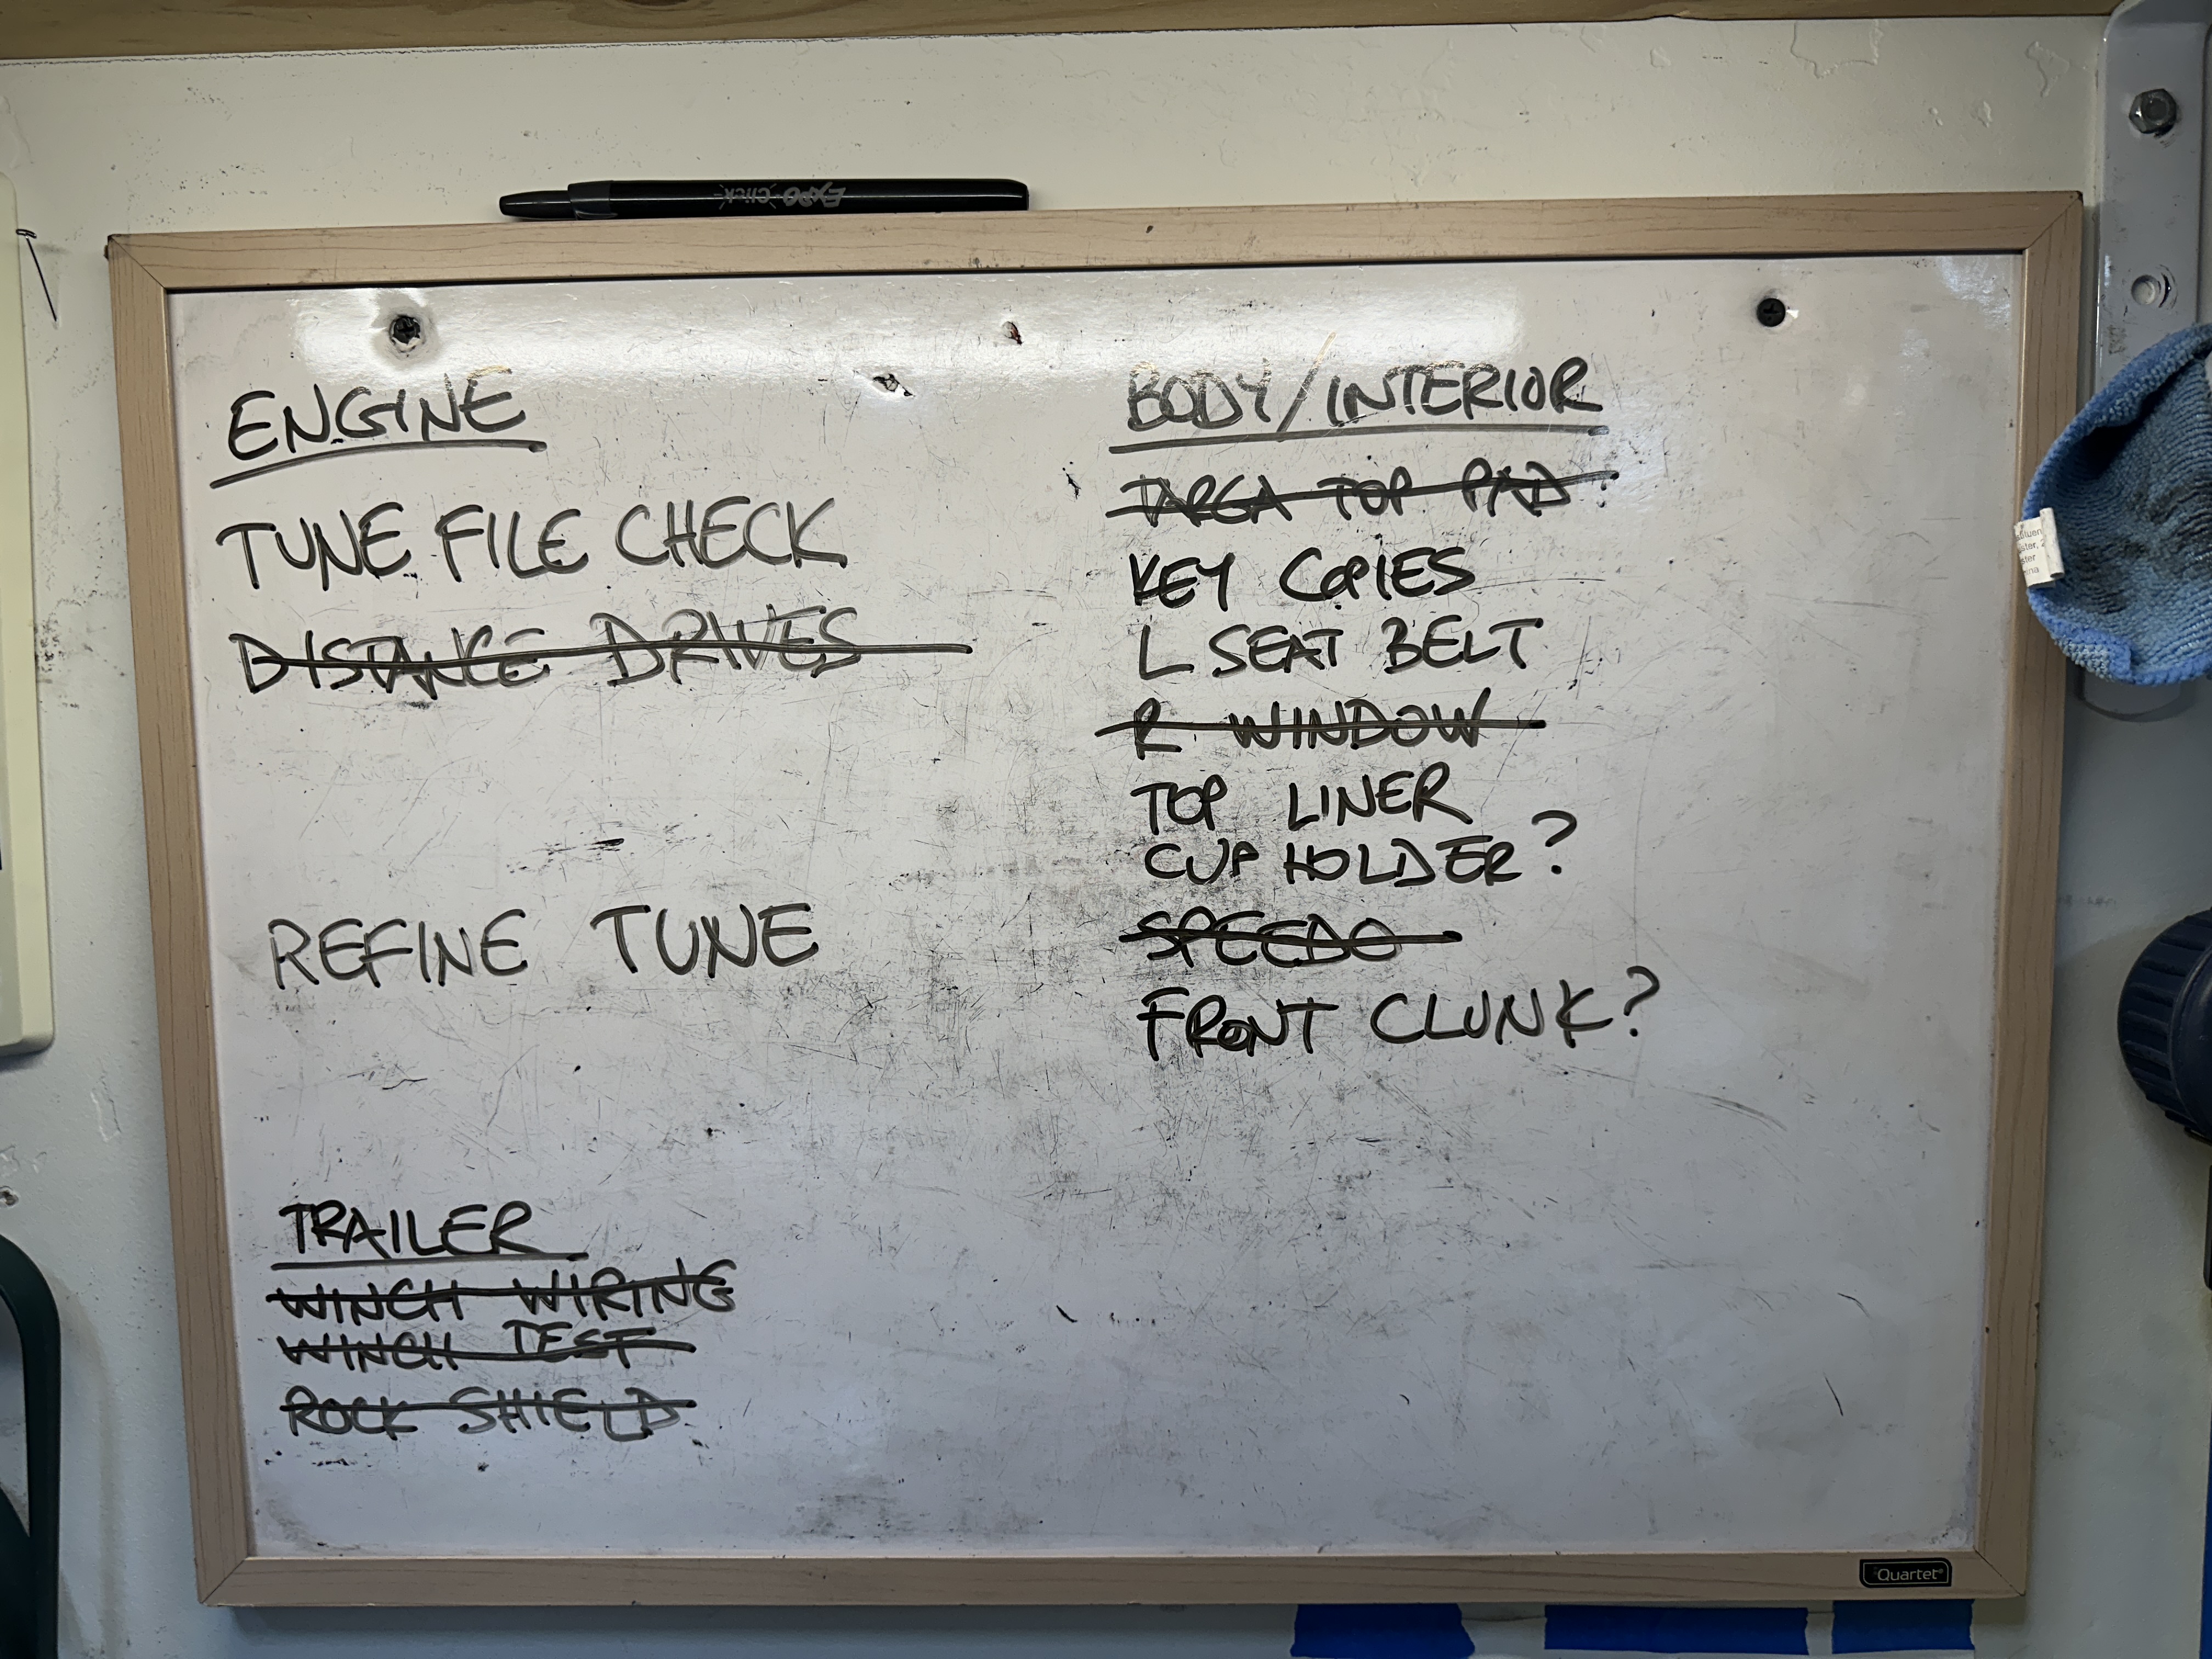 EXPO CLICK
ENGINE
TUNE FILE CHECK
DISTANCE DRIVES
REFINE TUNE
TRAILER
WINCH WIRING
WINCH TEST
ROCK SHIELD
BODY/INTERIOR
TARGA TOP PAD
KEY COPIES
L SEAT BELT
R WINDOW
TOP LINER
CUP HOLDER?
SPEEDO
FRONT CLUNK?
Quartet